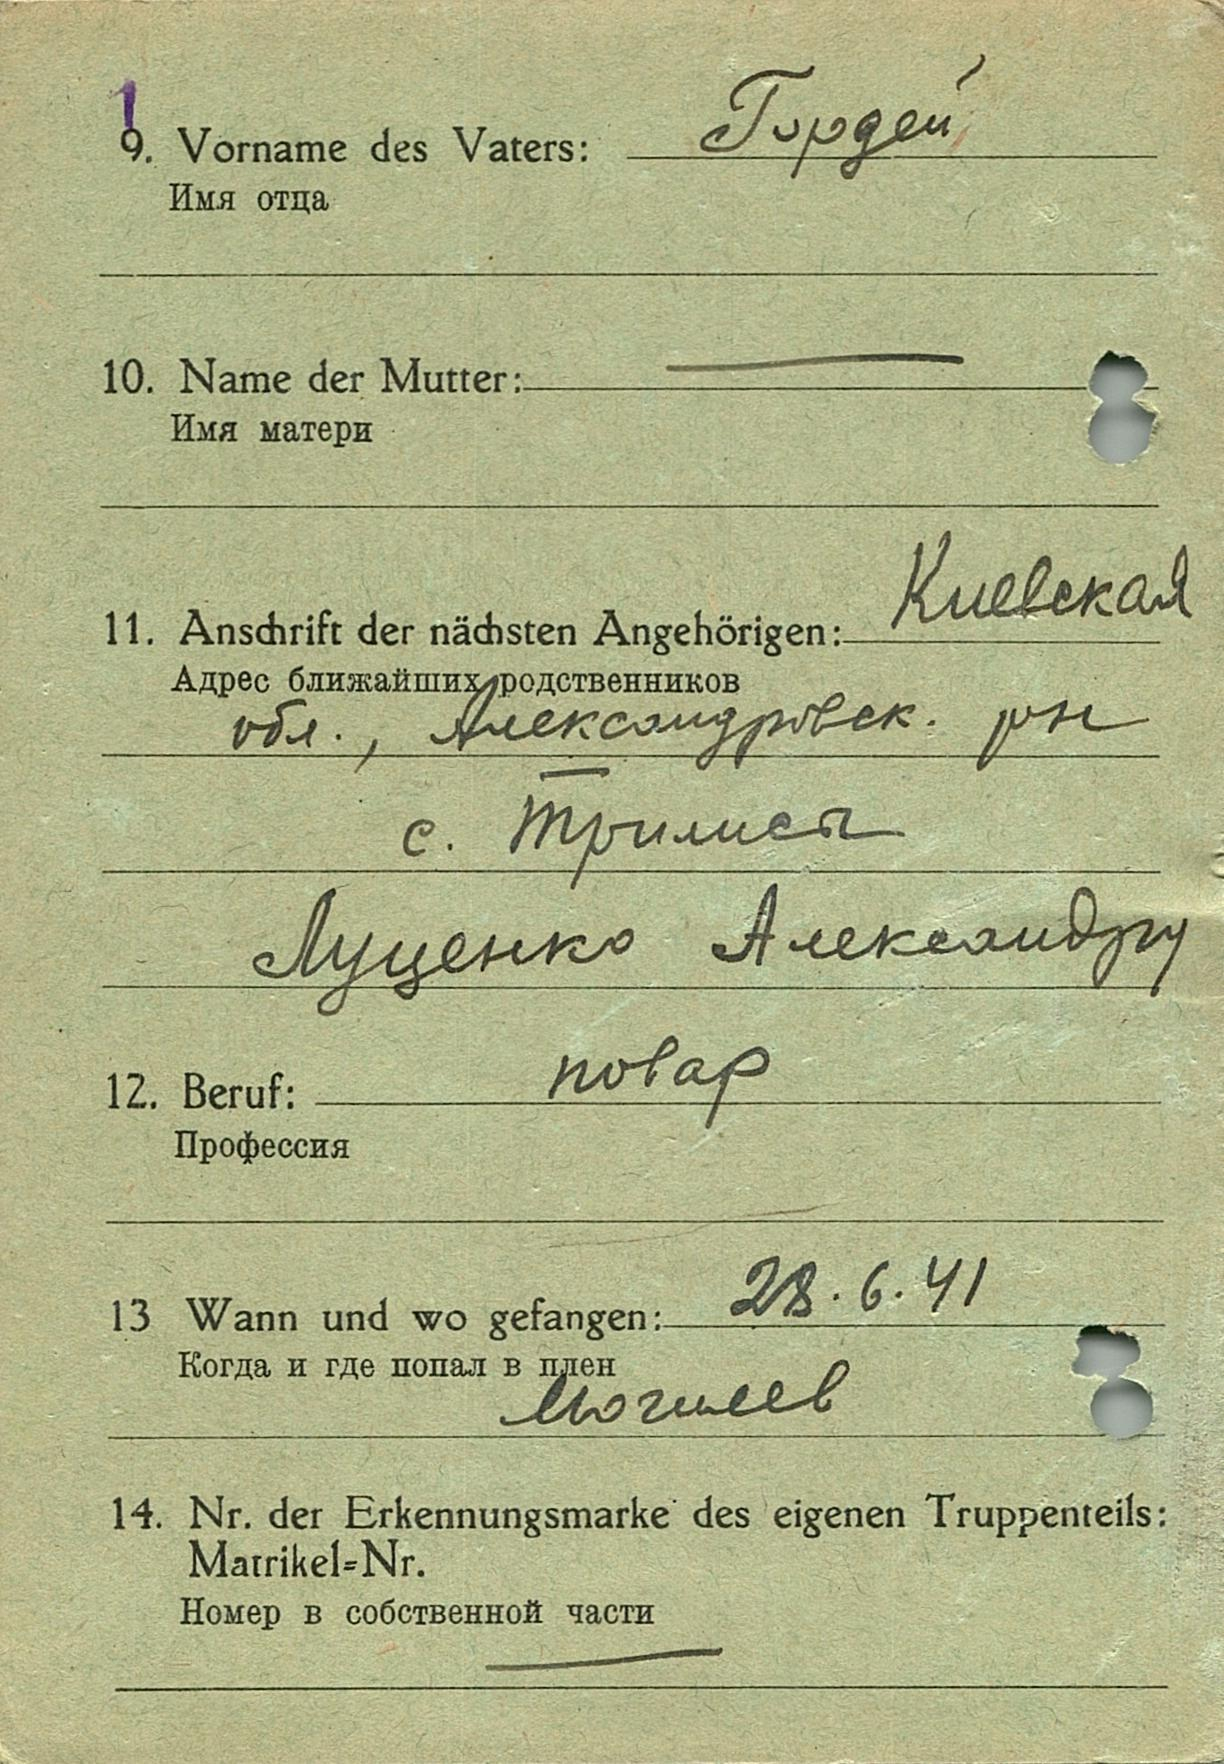 1
9. Vorname des Vaters: Гордей
Имя отца
10. Name der Mutter: —
Имя матери
11. Anschrift der nächsten Angehörigen: Киевская
Адрес ближайших родственников
обл., Александровск. рн
с. Трилисы
Луценко Александру
12. Beruf: повар
Профессия
13 Wann und wo gefangen: 28.6.41
Когда и где попал в плен
Могилев
14. Nr. der Erkennungsmarke des eigenen Truppenteils:
Matrikel=Nr.
Номер в собственной части
—